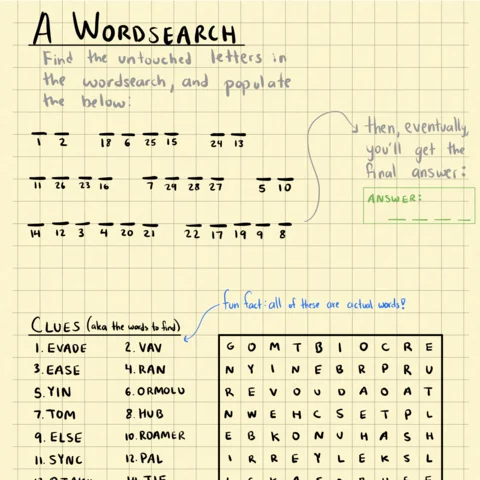 A WORDSEARCH
Find the untouched letters in
the wordsearch, and populate
the below:
1 2 18 6 25 15 24 13
11 26 23 16 7 29 28 27 5 10
14 12 3 4 20 21 22 17 19 9 8
then, eventually,
you'll get the
final answer:
ANSWER:
fun fact: all of these are actual words!
CLUES (aka the words to find)
1. EVADE 2. VAV
3. EASE 4. RAN
5. YIN 6. ORMOLU
7. TOM 8. HUB
9. ELSE 10. ROAMER
11. SYNC 12. PAL
G O M T B I O C R E
N Y I N E B R P R U
R E V O U D A O A T
N W E H C S E T P L
E B K O N U H A S H
I R R E Y L E K S L